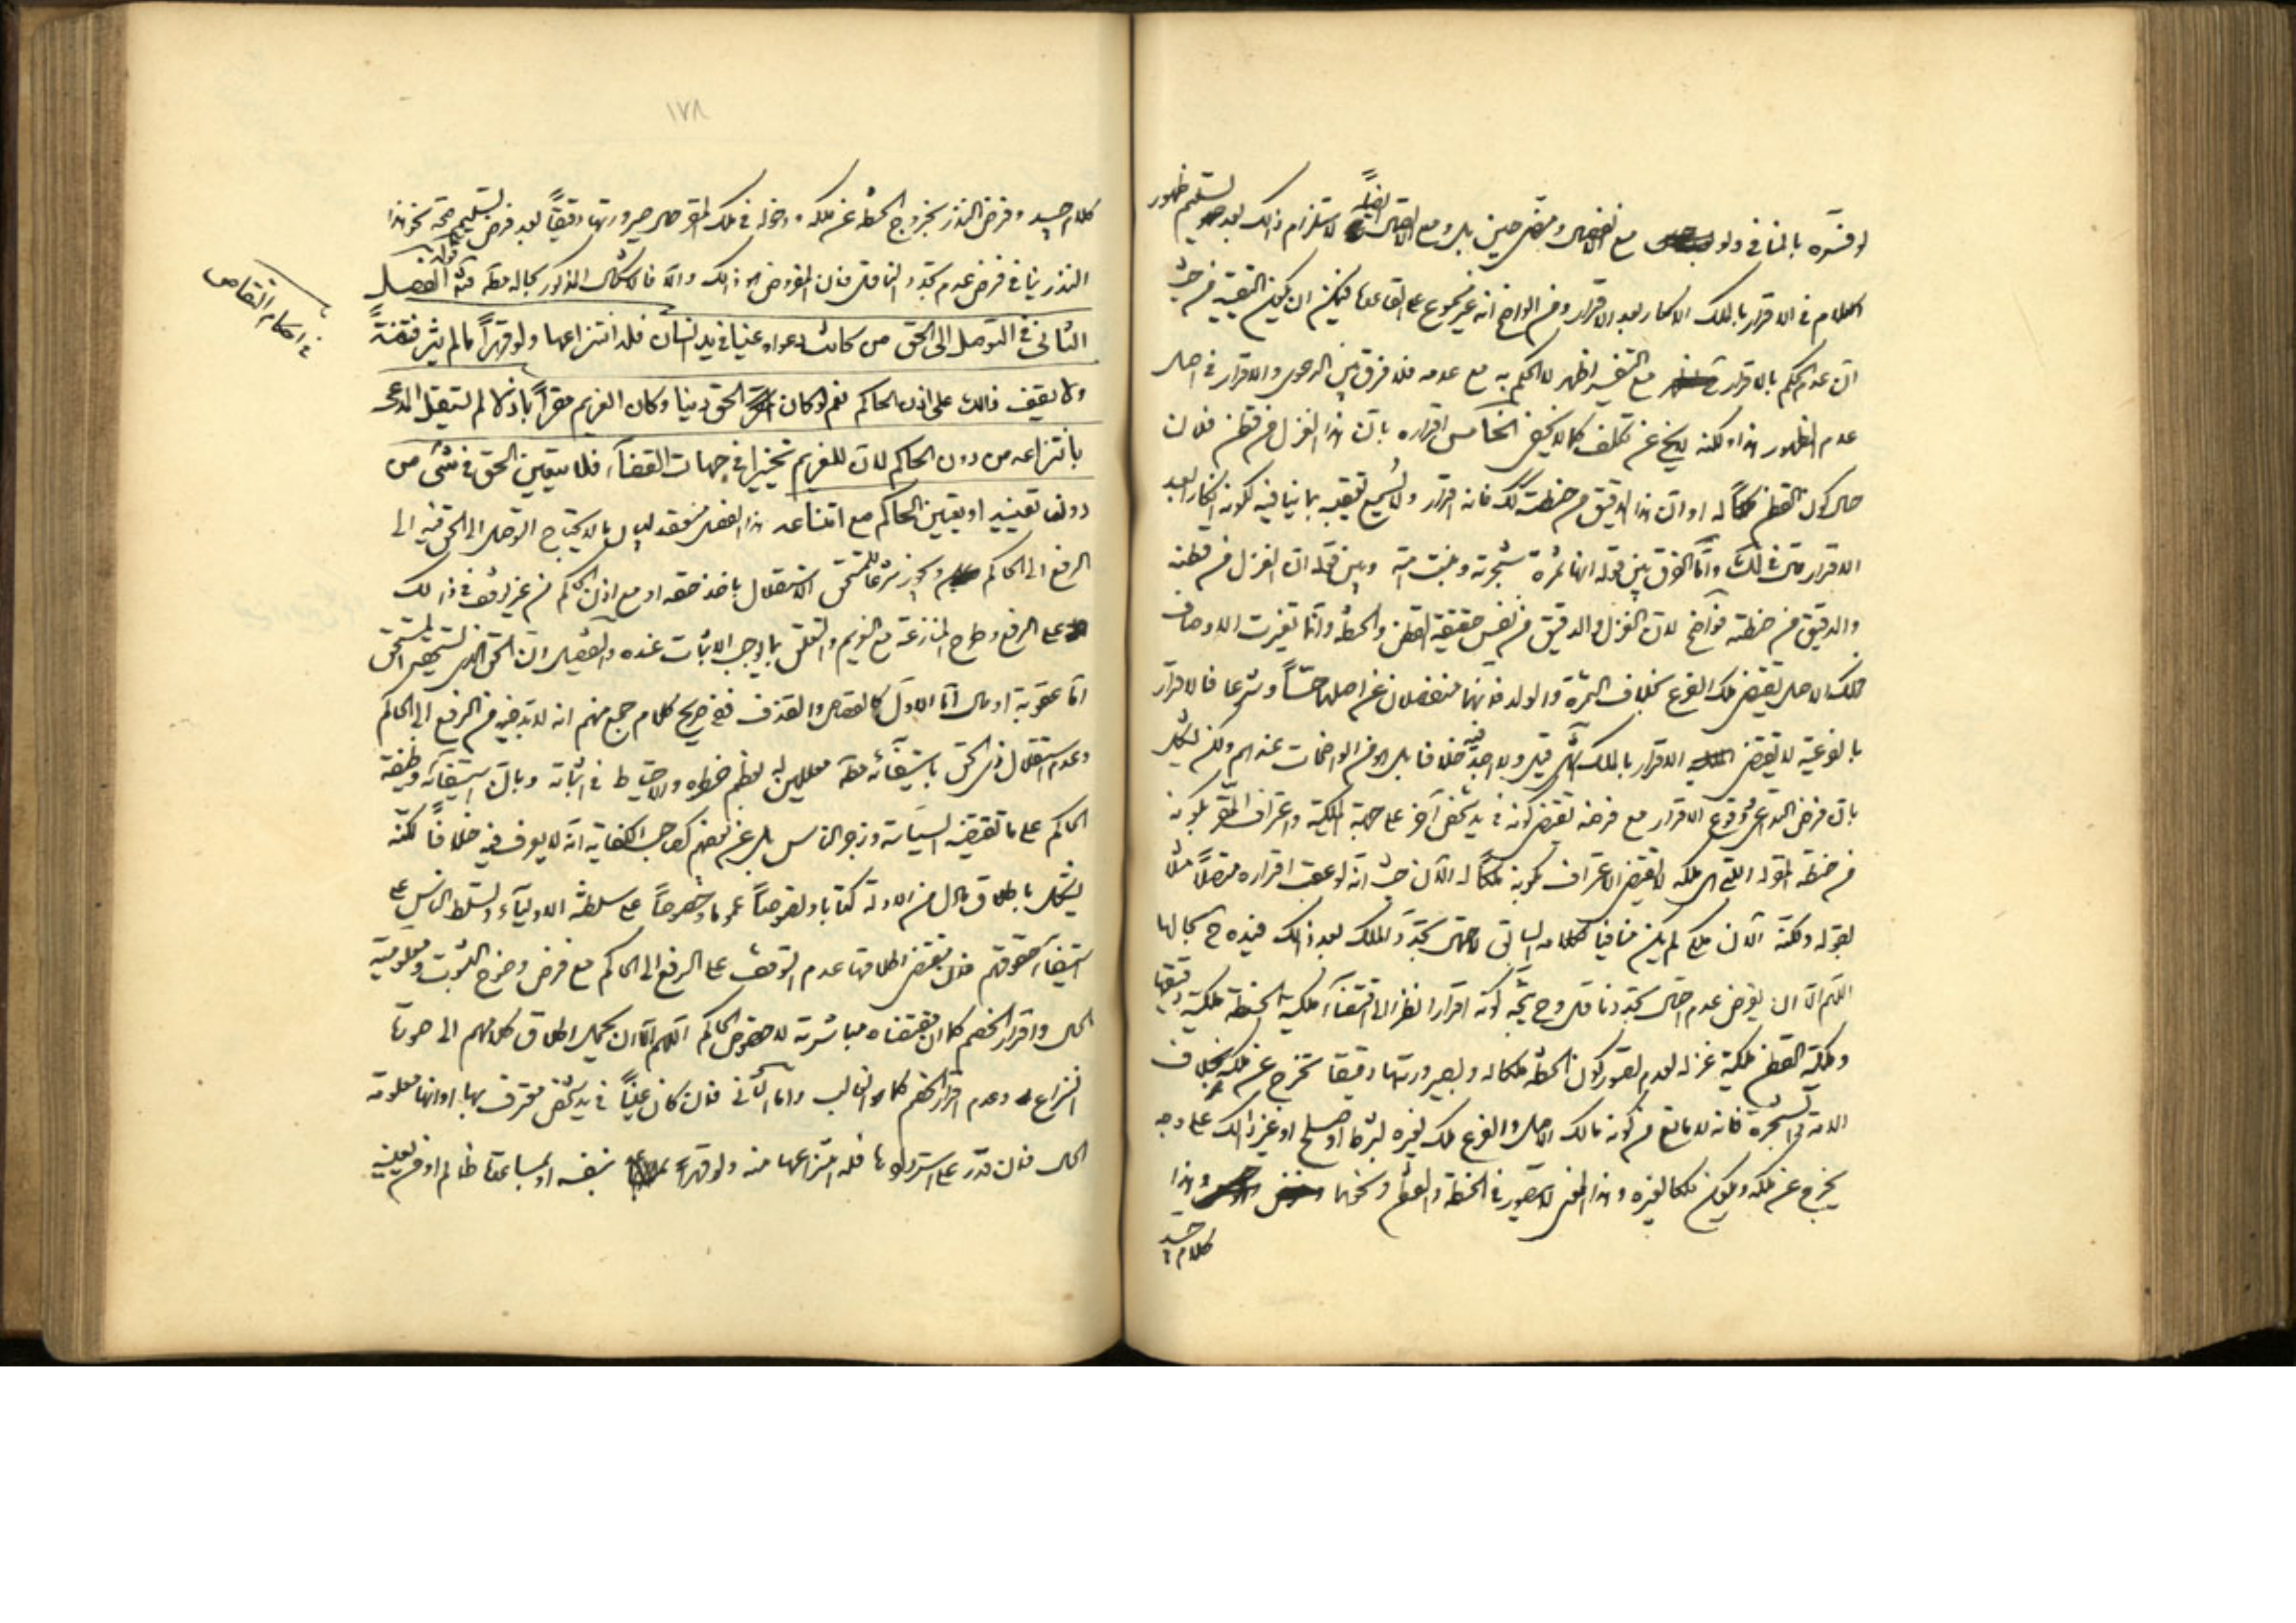 لو فسره بالمنافي ولو مع انفصال ومضى حين بل ومع الاتصال ايضاً لاستلزام ذلك بعد تسليم ظهور
الكلام في الاقرار بالملك الانكار بعد الاقرار ومن الواضح انه غير مسموع على القاعدة فيمكن ان يكون التقييد من حيث
ان عدم الحكم بالاقرار مع التفسير اظهر لا الحكم به مع عدمه فلا فرق بين الدعوى والاقرار في اصل
عدم الظهور هذا ولكنه لا يخ عن تكلف كما لا يخفى الخامس اقراره بان هذا الغزل من قطن فلان
حال كون القطن ملكاً له او ان هذا الدقيق من حنطته كك فانه اقرار ولا يسمع تعقيبه بما ينافيه لكونه انكار بعد
الاقرار وانما الفرق بين قوله انها ثمرة شجرته وبنت امته وبين قوله ان الغزل من قطنه
والدقيق من حنطته فواضح لان الغزل والدقيق من نفس حقيقة القطن والحنطة وانما تغيرت الاوصاف
فملك الاصل يقتضي ملك الفرع بخلاف الثمرة والولد فانهما منفصلان عن اصلهما حسّاً وشرعا فالاقرار
بالفرعية لا يقتضي الاقرار بالملك قيل ولا اجد فيه خلافا بل هو من الواضحات عندهم ولكن يشكل
بان فرض التداعي ووقوع الاقرار مع فرضه يقتضي كونه في يد شخص آخر على جهة الملكية واعتراف المقر بكونه
من حنطة المقر له التي هي ملكه لا يقتضي الاعتراف بكونه ملكاً له الآن حيث انه لو عقب اقراره متصلاً مثلا
بقوله ولكنه الآن ملكي لم يكن منافيا لكلامه السابق لاحتمال تجدد الملك بعد ذلك فيده ح بحالها
اللهم الا ان يفرض عدم احتمال تجدد ناقل وح يتجه كونه اقرارا نظرا الى اقتضاء ملكية الحنطة ملكية دقيقها
وملكية القطن ملكية غزله لعدم تصور كون الحنطة ملكا له وبصيرورتها دقيقا تخرج عن ملكه بخلاف
الامة والشجرة فانه لا مانع من كونه مالك الاصل والفرع ملك لغيره بشراء او صلح او غير ذلك على وجه
يخرج عن ملكه ويكون ملكا لغيره وهذا المعنى لا يتصور في الحنطة والقطن ونحوهما وهذا
كلام جيد
١٧٨
كلام جيد وفرض النذر بخروج الحنطة عن ملكه ودخوله في ملك المقر حال صيرورتها دقيقاً بعد فرض تسليم صحة نحو هذا
النذر ينافي فرض عدم تجدد الناقل فان المفروض ذلك والا فالاشكال المذكور بحاله الفصل
في احكام التقاص
الثاني في التوصل الى الحق من كانت دعواه عينا في يد انسان فله انتزاعها ولو قهراً ما لم يثر فتنةً
ولا يقف ذلك على اذن الحاكم نعم لو كان الحق دينا وكان الغريم مقراً باذلا لم يستقل المدعي
بانتزاعه من دون الحاكم لان للغريم تخييرا في جهات القضاء فلا يتعين الحق في شيء من
دون تعيينه او بتعيين الحاكم مع امتناعه هذا الفصل منعقد لبيان ما لا يحتاج التوصل الى الحق فيه الى
الرفع الى الحاكم ويجوز شرعا للمستحق الاستقلال باخذ حقه او مع اذن الحاكم من غير توقف في ذلك
على الرفع وطرح المنازعة مع الغريم والتعلق بما يوجب الاثبات عنده والتفصيل ان الحق الذي يستحقه المستحق
اما عقوبة او مال اما الاول كالقصاص والقذف ففي صريح كلام جمع منهم انه لا بد فيه من الرفع الى الحاكم
وعدم استقلال ذي الحق باستيفائه معللين له بعظم خطره والاحتياط في اثباته وبان استيفائه وظيفة
الحاكم على ما تقتضيه السياسة وزجر الناس بل عن بعضهم كصاحب الكفاية انه لا يعرف فيه خلافاً لكنه
يشكل باطلاق ما دل من الادلة كتابا ونصوصاً عموما وخصوصاً على سلطنة الاولياء وتسلط الناس على
استيفاء حقوقهم فان مقتضى اطلاقها عدم التوقف على الرفع الى الحاكم مع فرض وضوح الثبوت ومعلومية
الحال واقرار الخصم كما ان مقتضاه مباشرته لا خصوص الحاكم اللهم الا ان يحمل اطلاق كلامهم الى صورة
النزاع وعدم اقرار الخصم كما هو الغالب واما الثاني فان كان عيناً في يد شخص معترف بها او انها معلومة
الحال فان قدر على استردادها فله انتزاعها منه ولو قهراً بنفسه او بمساعدة ظالم او من يعينه